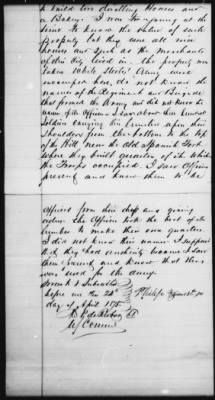 to build two dwelling Houses and
a Bakery. I was too young at the
time to know the value of such
property but they were all nice
houses and such as the merchants
of this City lived in. The property was
taken while Scott's Army were
encamped here. do not know the
names of the Regiment and Brigade
that formed the Army and did not know the
name of the Officers. I saw about two hundred
Soldiers carrying this lumber upon their
Shoulders from the bottom to the top
of the Hill near the old Spanish Fort
where they built quarters of it which
the Troops occupied. I saw Officers
present and knew them to be
Officers from their dress and giving
orders. The Officers took the best of the
lumber to make their own quarters.
I did not know their names. I suppose
that they had authority because I saw
them and know that this
was used for the army.
Sworn to & Subscribed
before me this 24th
day of April 1875